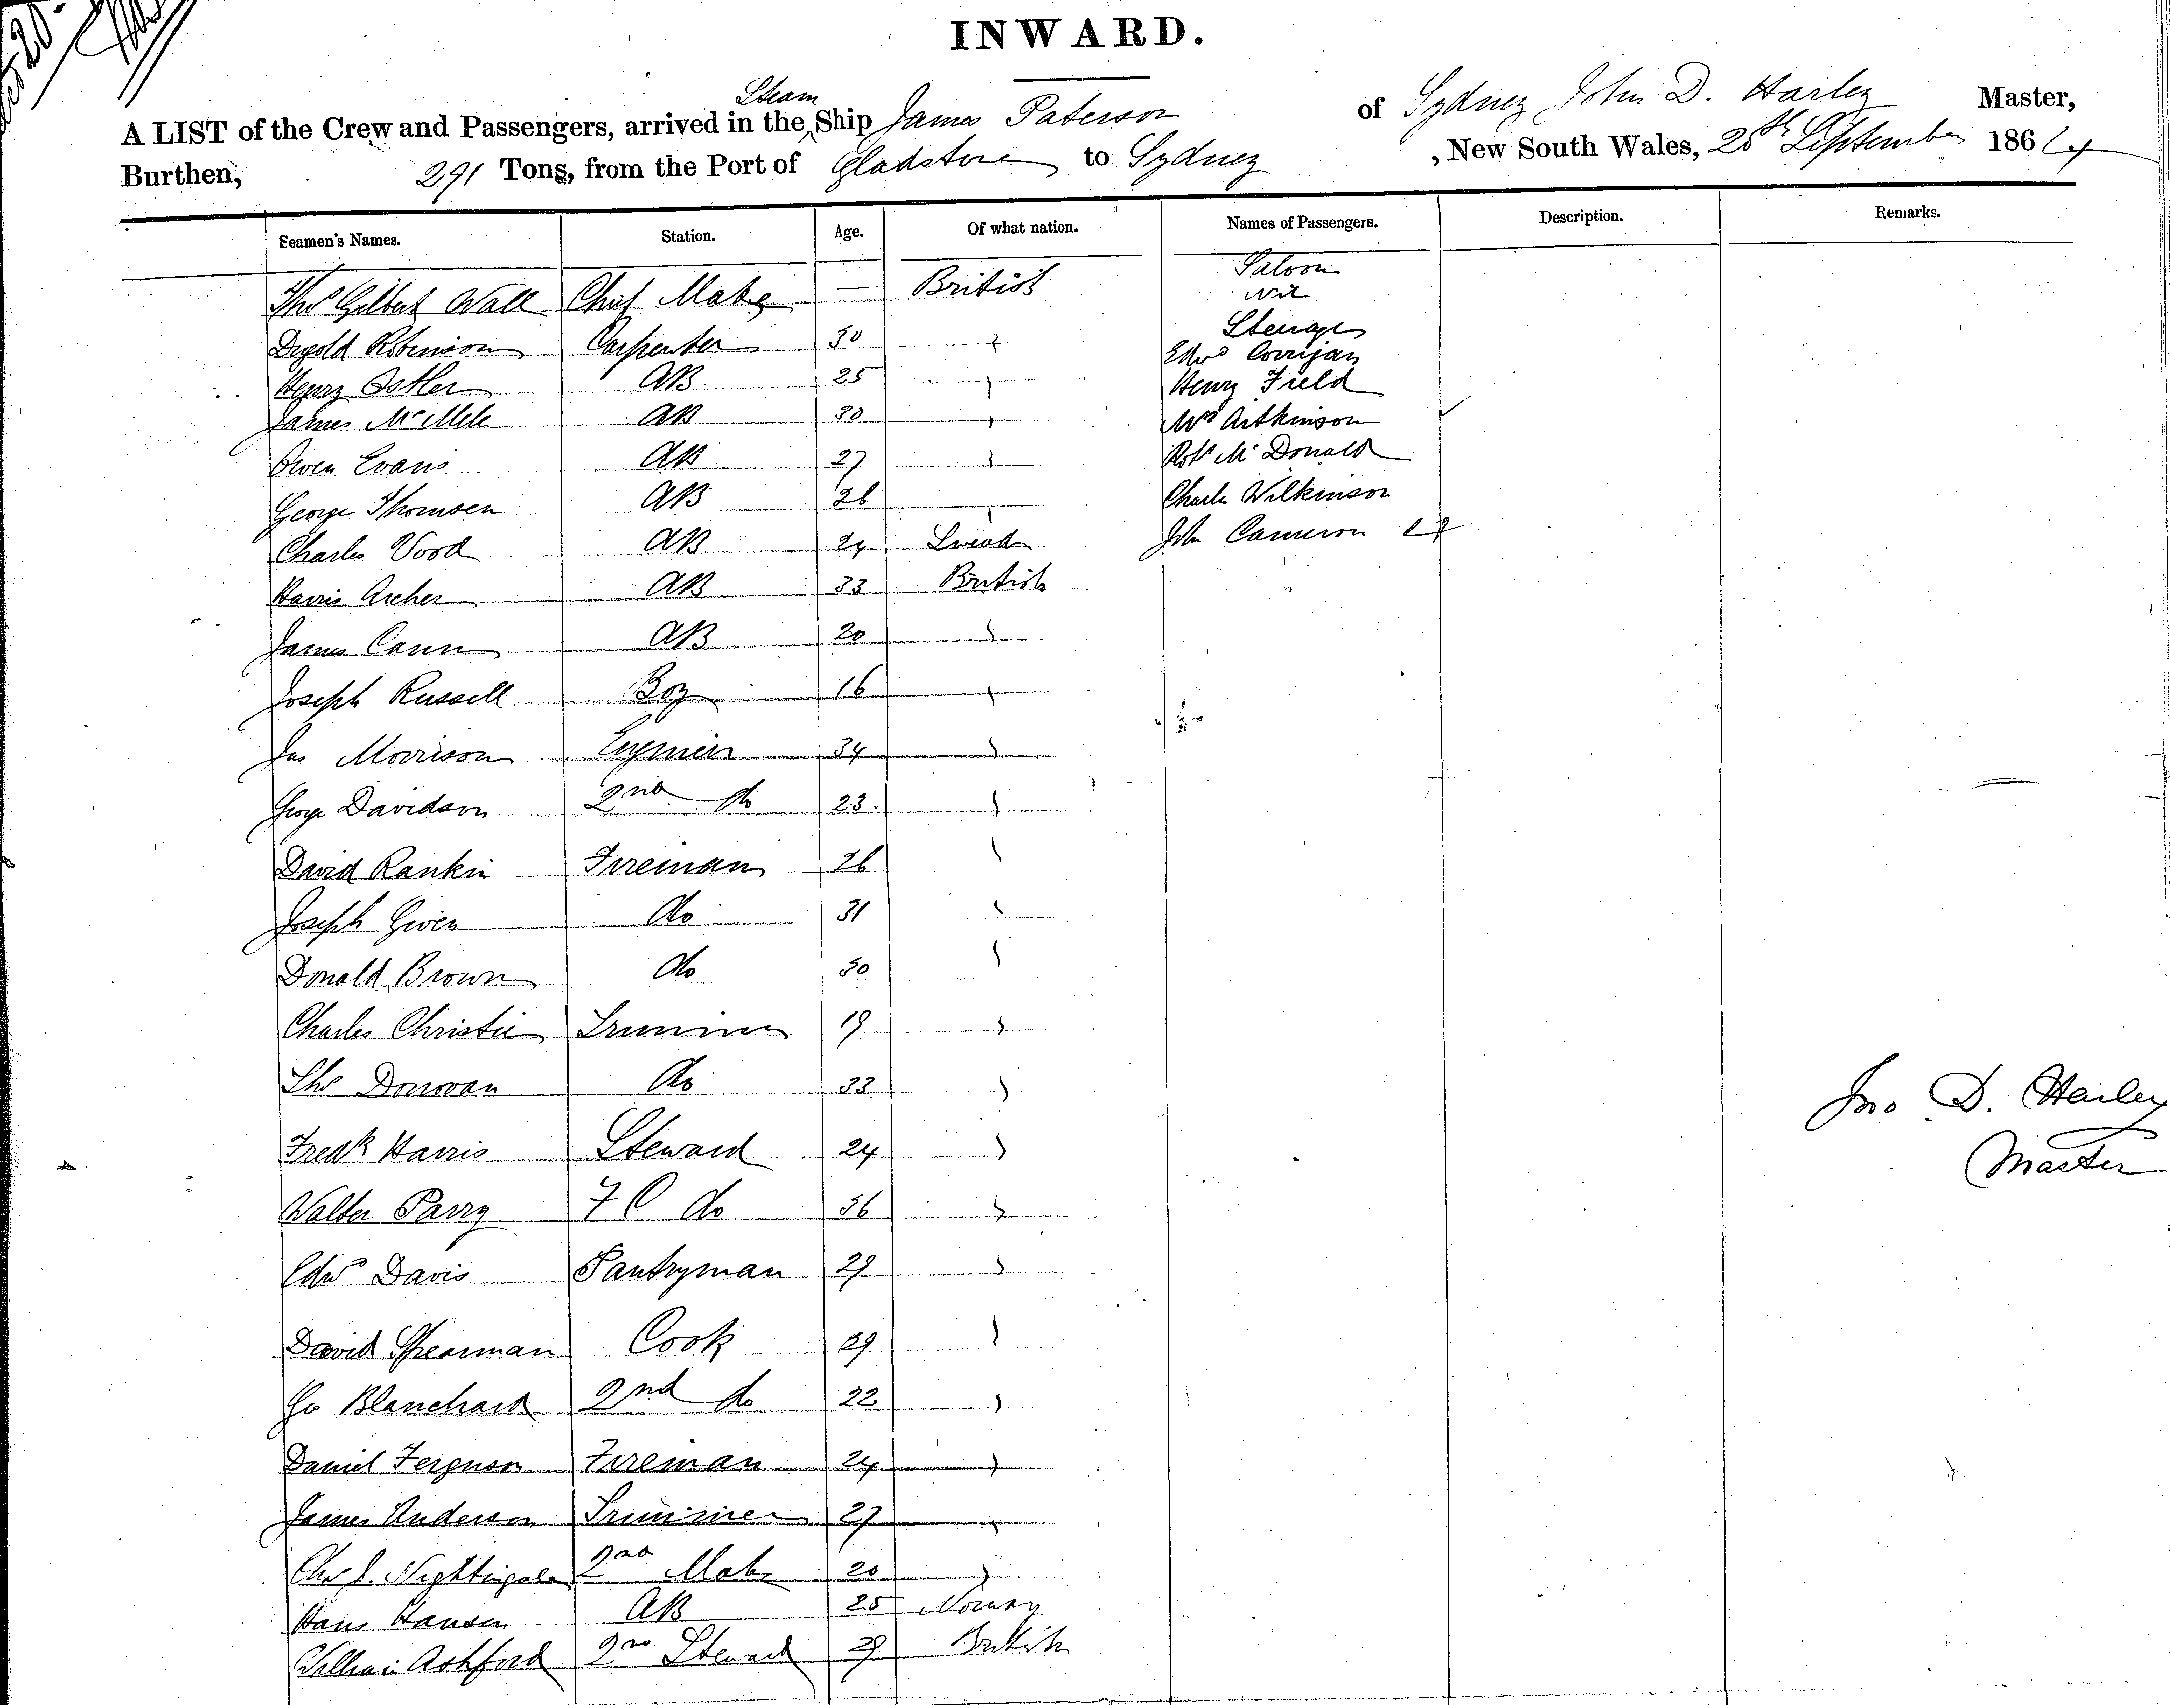 INWARD.
A LIST of the Crew and Passengers, arrived in the Steam Ship James Paterson of Sydney John D. Harley Master,
Burthen, 291 Tons, from the Port of Gladstone to Sydney , New South Wales, 28th September 1864
Seamen's Names. Station. Age. Of what nation. Names of Passengers. Description. Remarks.
Saloon
Thos Gilbert Wall Chief Mate — British Nil
Steerage
Robinson Carpenter 30 " Edwd Corrigan
Henry Ostler AB 25 " Henry Field
James AB 30 " Mrs Aitkinson
Owen Evans AB 27 " Robt McDonald
George Thomsen AB 26 " Charles Wilkinson
Charles Wood AB 24 Swede John Cameron
Harris Archer AB 33 British
James Cann AB 20 "
Joseph Russell Boy 16 "
Jas Morrison Engineer 34 "
George Davidson 2nd do 23 "
David Rankin Fireman 26 "
Joseph Given do 31 "
Donald Brown do 30 "
Charles Christie Trimmer 19 "
Thos Donovan do 33 "
Jno D. Harley
Master
Fredk Harris Steward 24 "
Walter Parry F C do 36 "
Edwd Davis Pantryman 29 "
David Spearman Cook 29 "
Geo Blanchard 2nd do 22 "
Daniel Ferguson Fireman 24 "
James Anderson Trimmer 27 "
Chas J. Nightingale 2nd Mate 20 "
Hans Hansen AB 25 Norway
William Ashford 2nd Steward 29 British